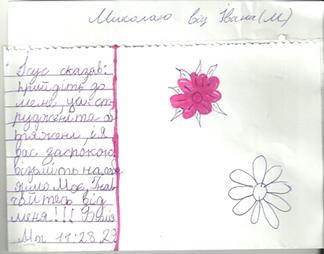 Миколаю від Івана (М)
Ісус сказав:
прийдіть до
мене, усі ст
руджені та об
тяжені, і я
вас заспокою
візьміть на себе
ярмо Моє, і нав
чайтесь від
меня!!!
Мт 11:28,29